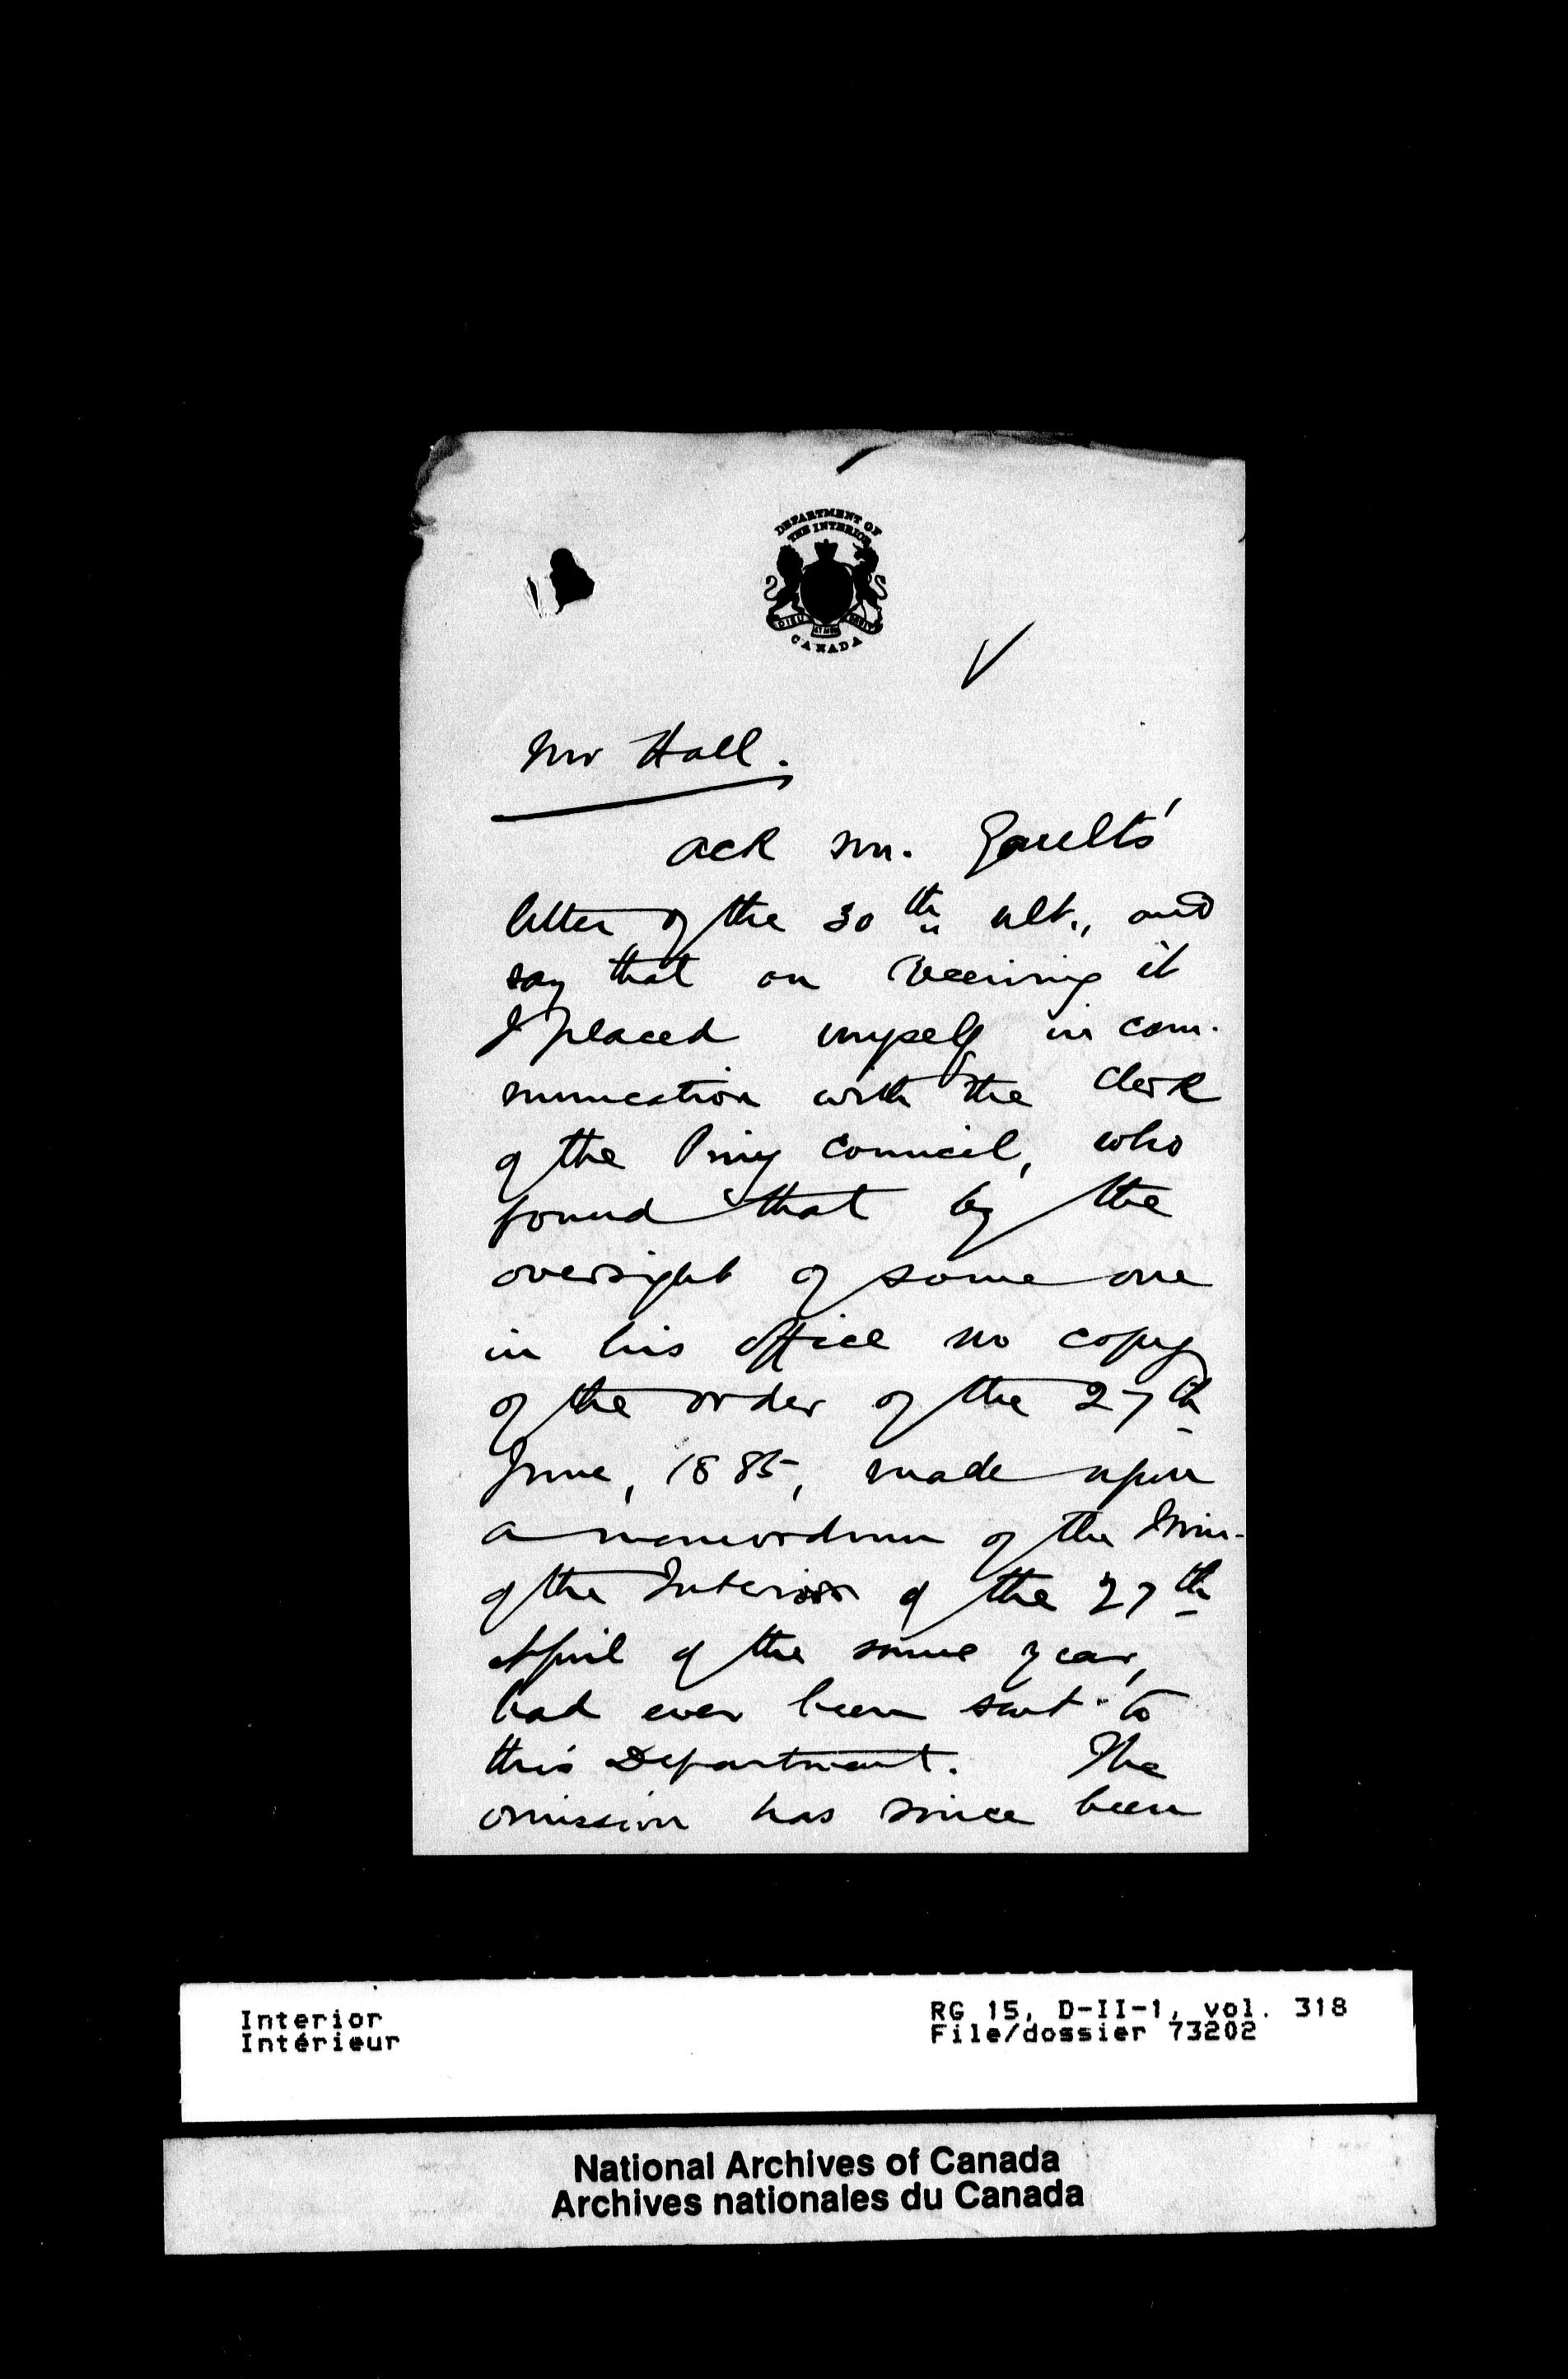 DEPARTMENT OF
THE INTERIOR
DIEU ET MON DROIT
CANADA
Mr Hall.
Ack Mr. Gault's
letter of the 30th ult., and
say that on receiving it
I placed myself in com-
munication with the Clerk
of the Privy Council, who
found that by the
oversight of some one
in his office no copy
of the order of the 27th
June, 1885, made upon
a memordum of the Min-
of the Interior of the 27th
April of the same year,
had ever been sent to
this Department. The
omission has since been
Interior
Intérieur
RG 15, D-II-1, vol. 318
File/dossier 73202
National Archives of Canada
Archives nationales du Canada